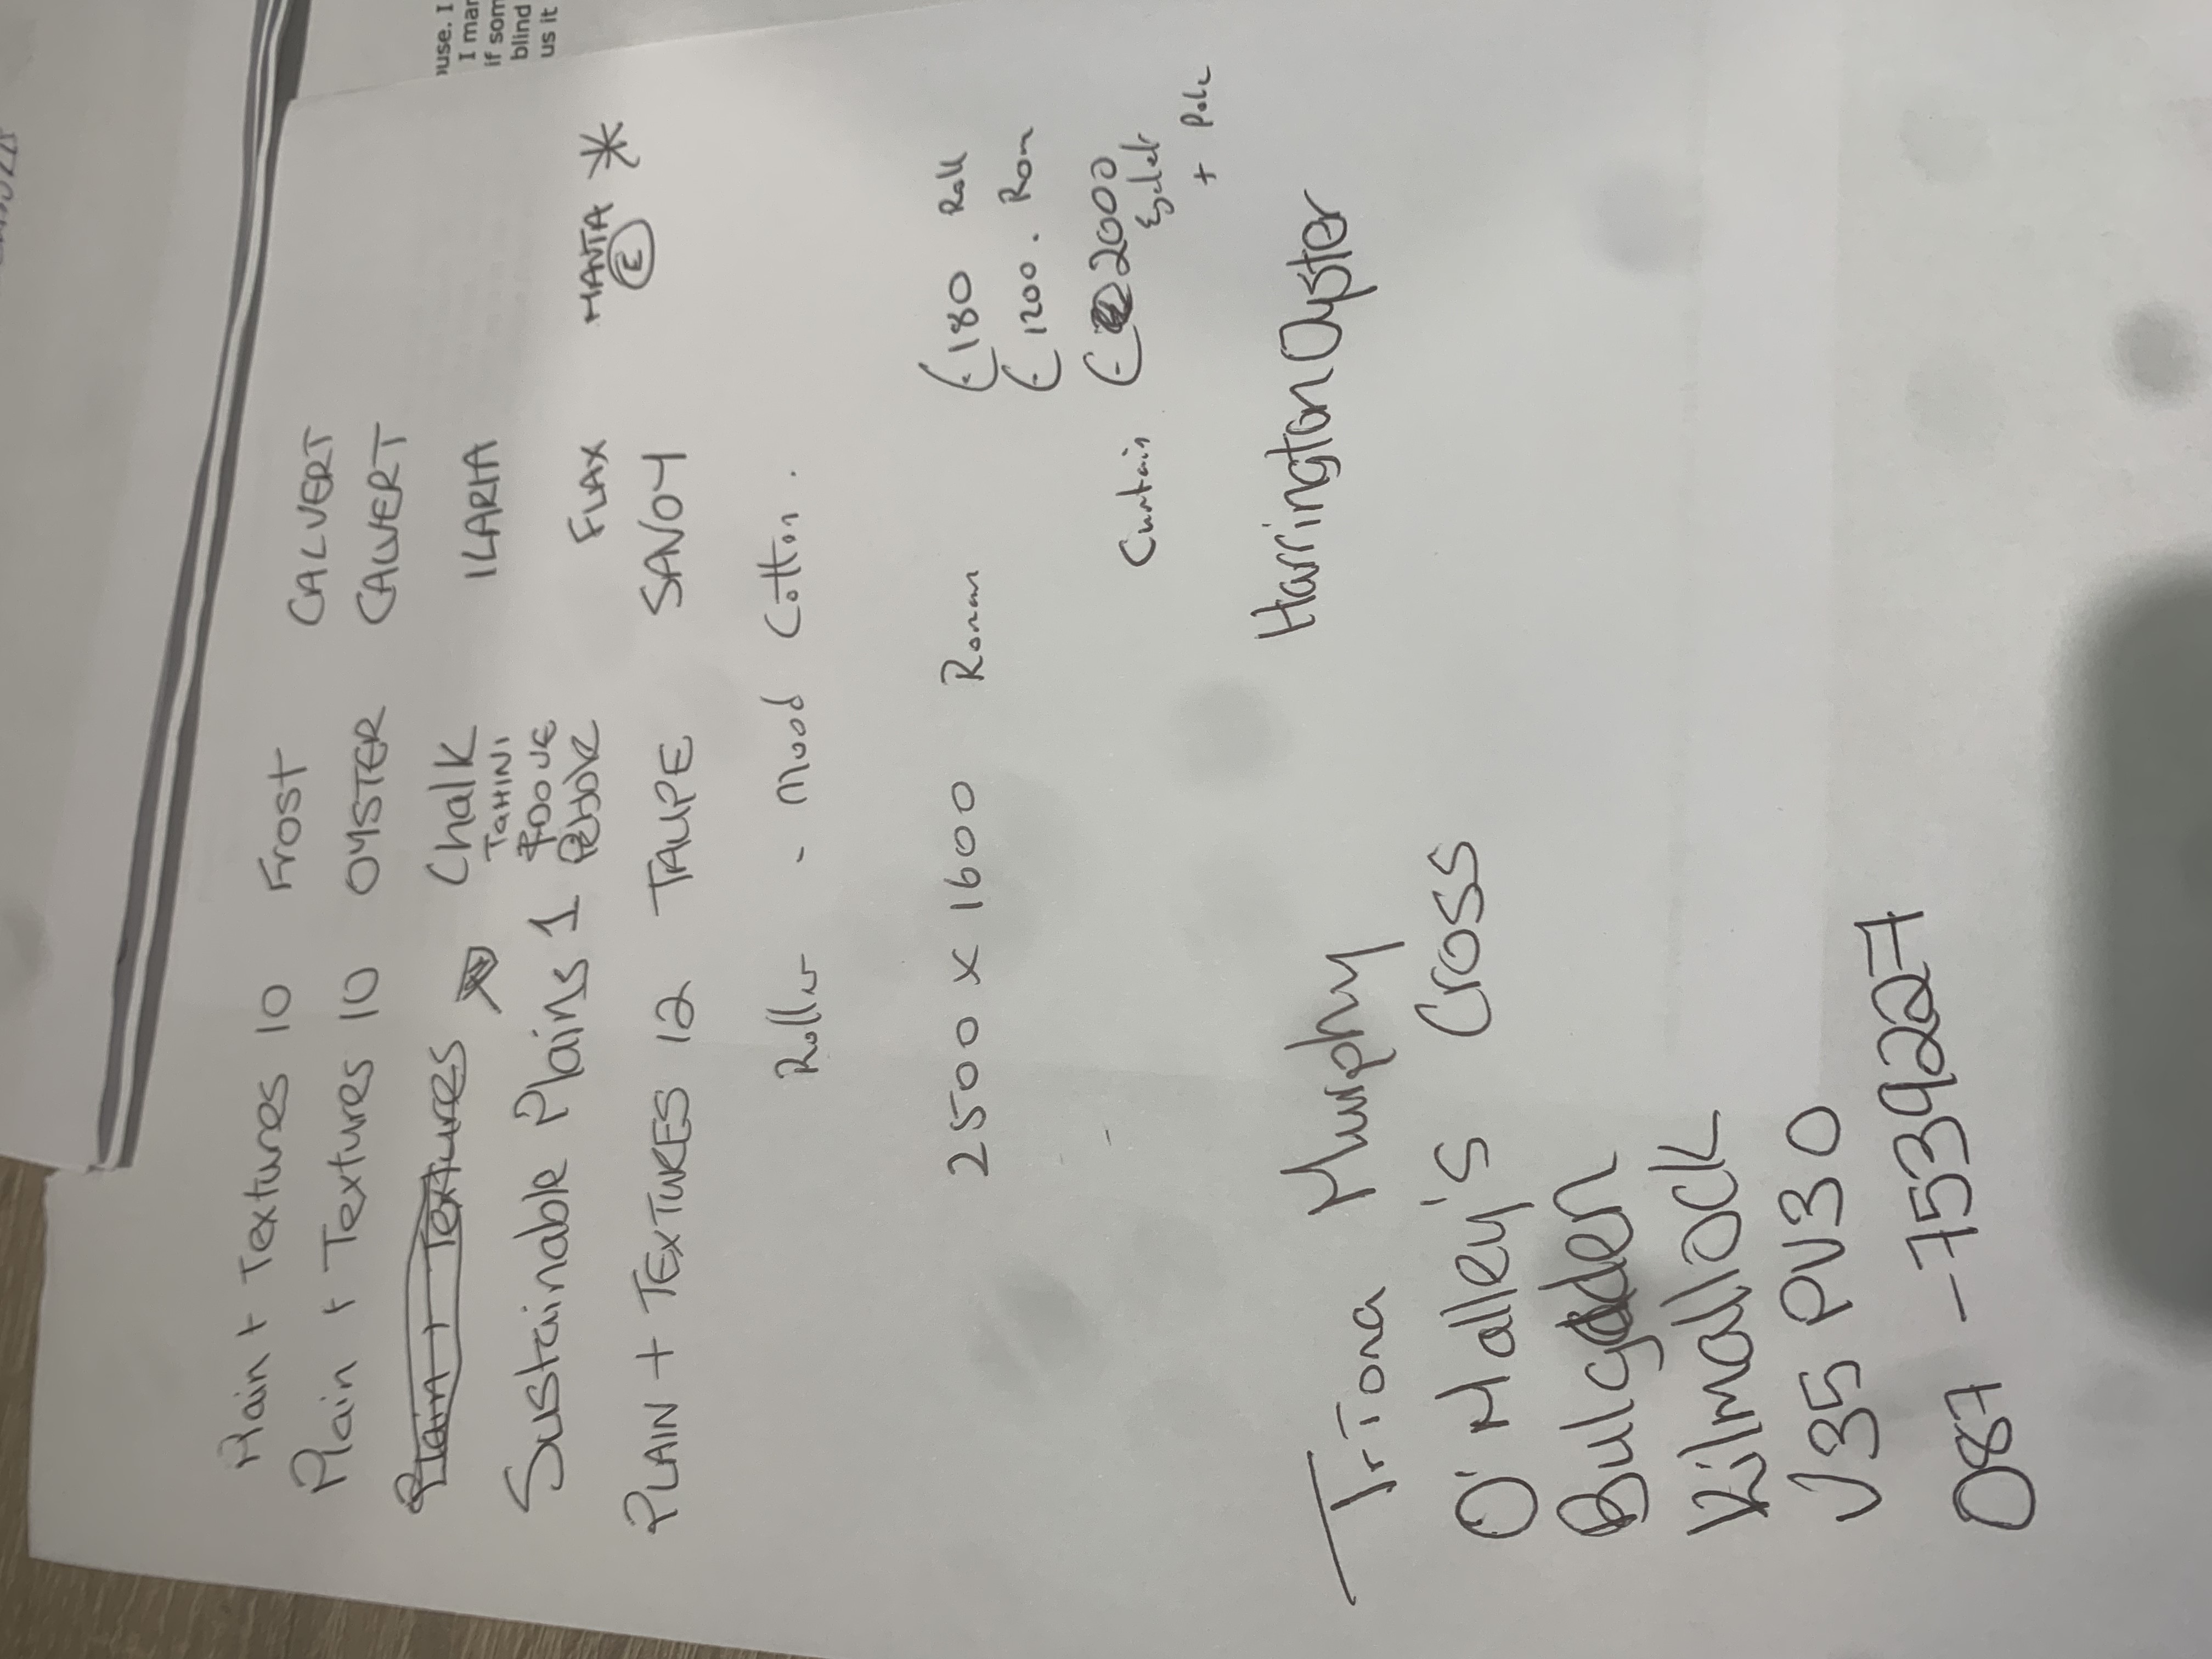 Plain + Textures 10 Frost CALVERT
Plain + Textures 10 OYSTER CALVERT
Plain + Textures Chalk ILARIA
TAHINI
Sustainable Plains 1 FLAX MANTA *
E
PLAIN + TEXTURES 12 TAUPE SAVOY
Roller - Mood Cotton.
2500 x 1600 Roman
€180 Roll
€1200. Rom
Curtain €2000
Eyelet
+ Pole
Harrington Oyster
Triona Murphy
O'Malley's Cross
Bulgaden
Kilmallock
V35 PV30
087-7539227
ouse. I
I mar
if som
blind
us it